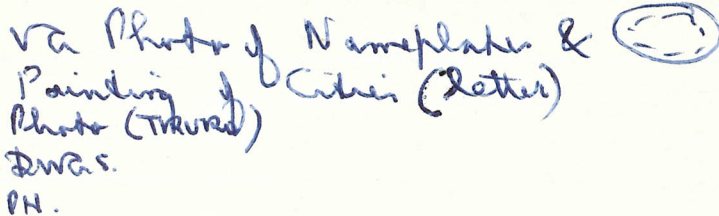 Va Photo of Nameplates &
Painting of Cities (Letter)
Photo (TMRURW)
DWGS.
PN.